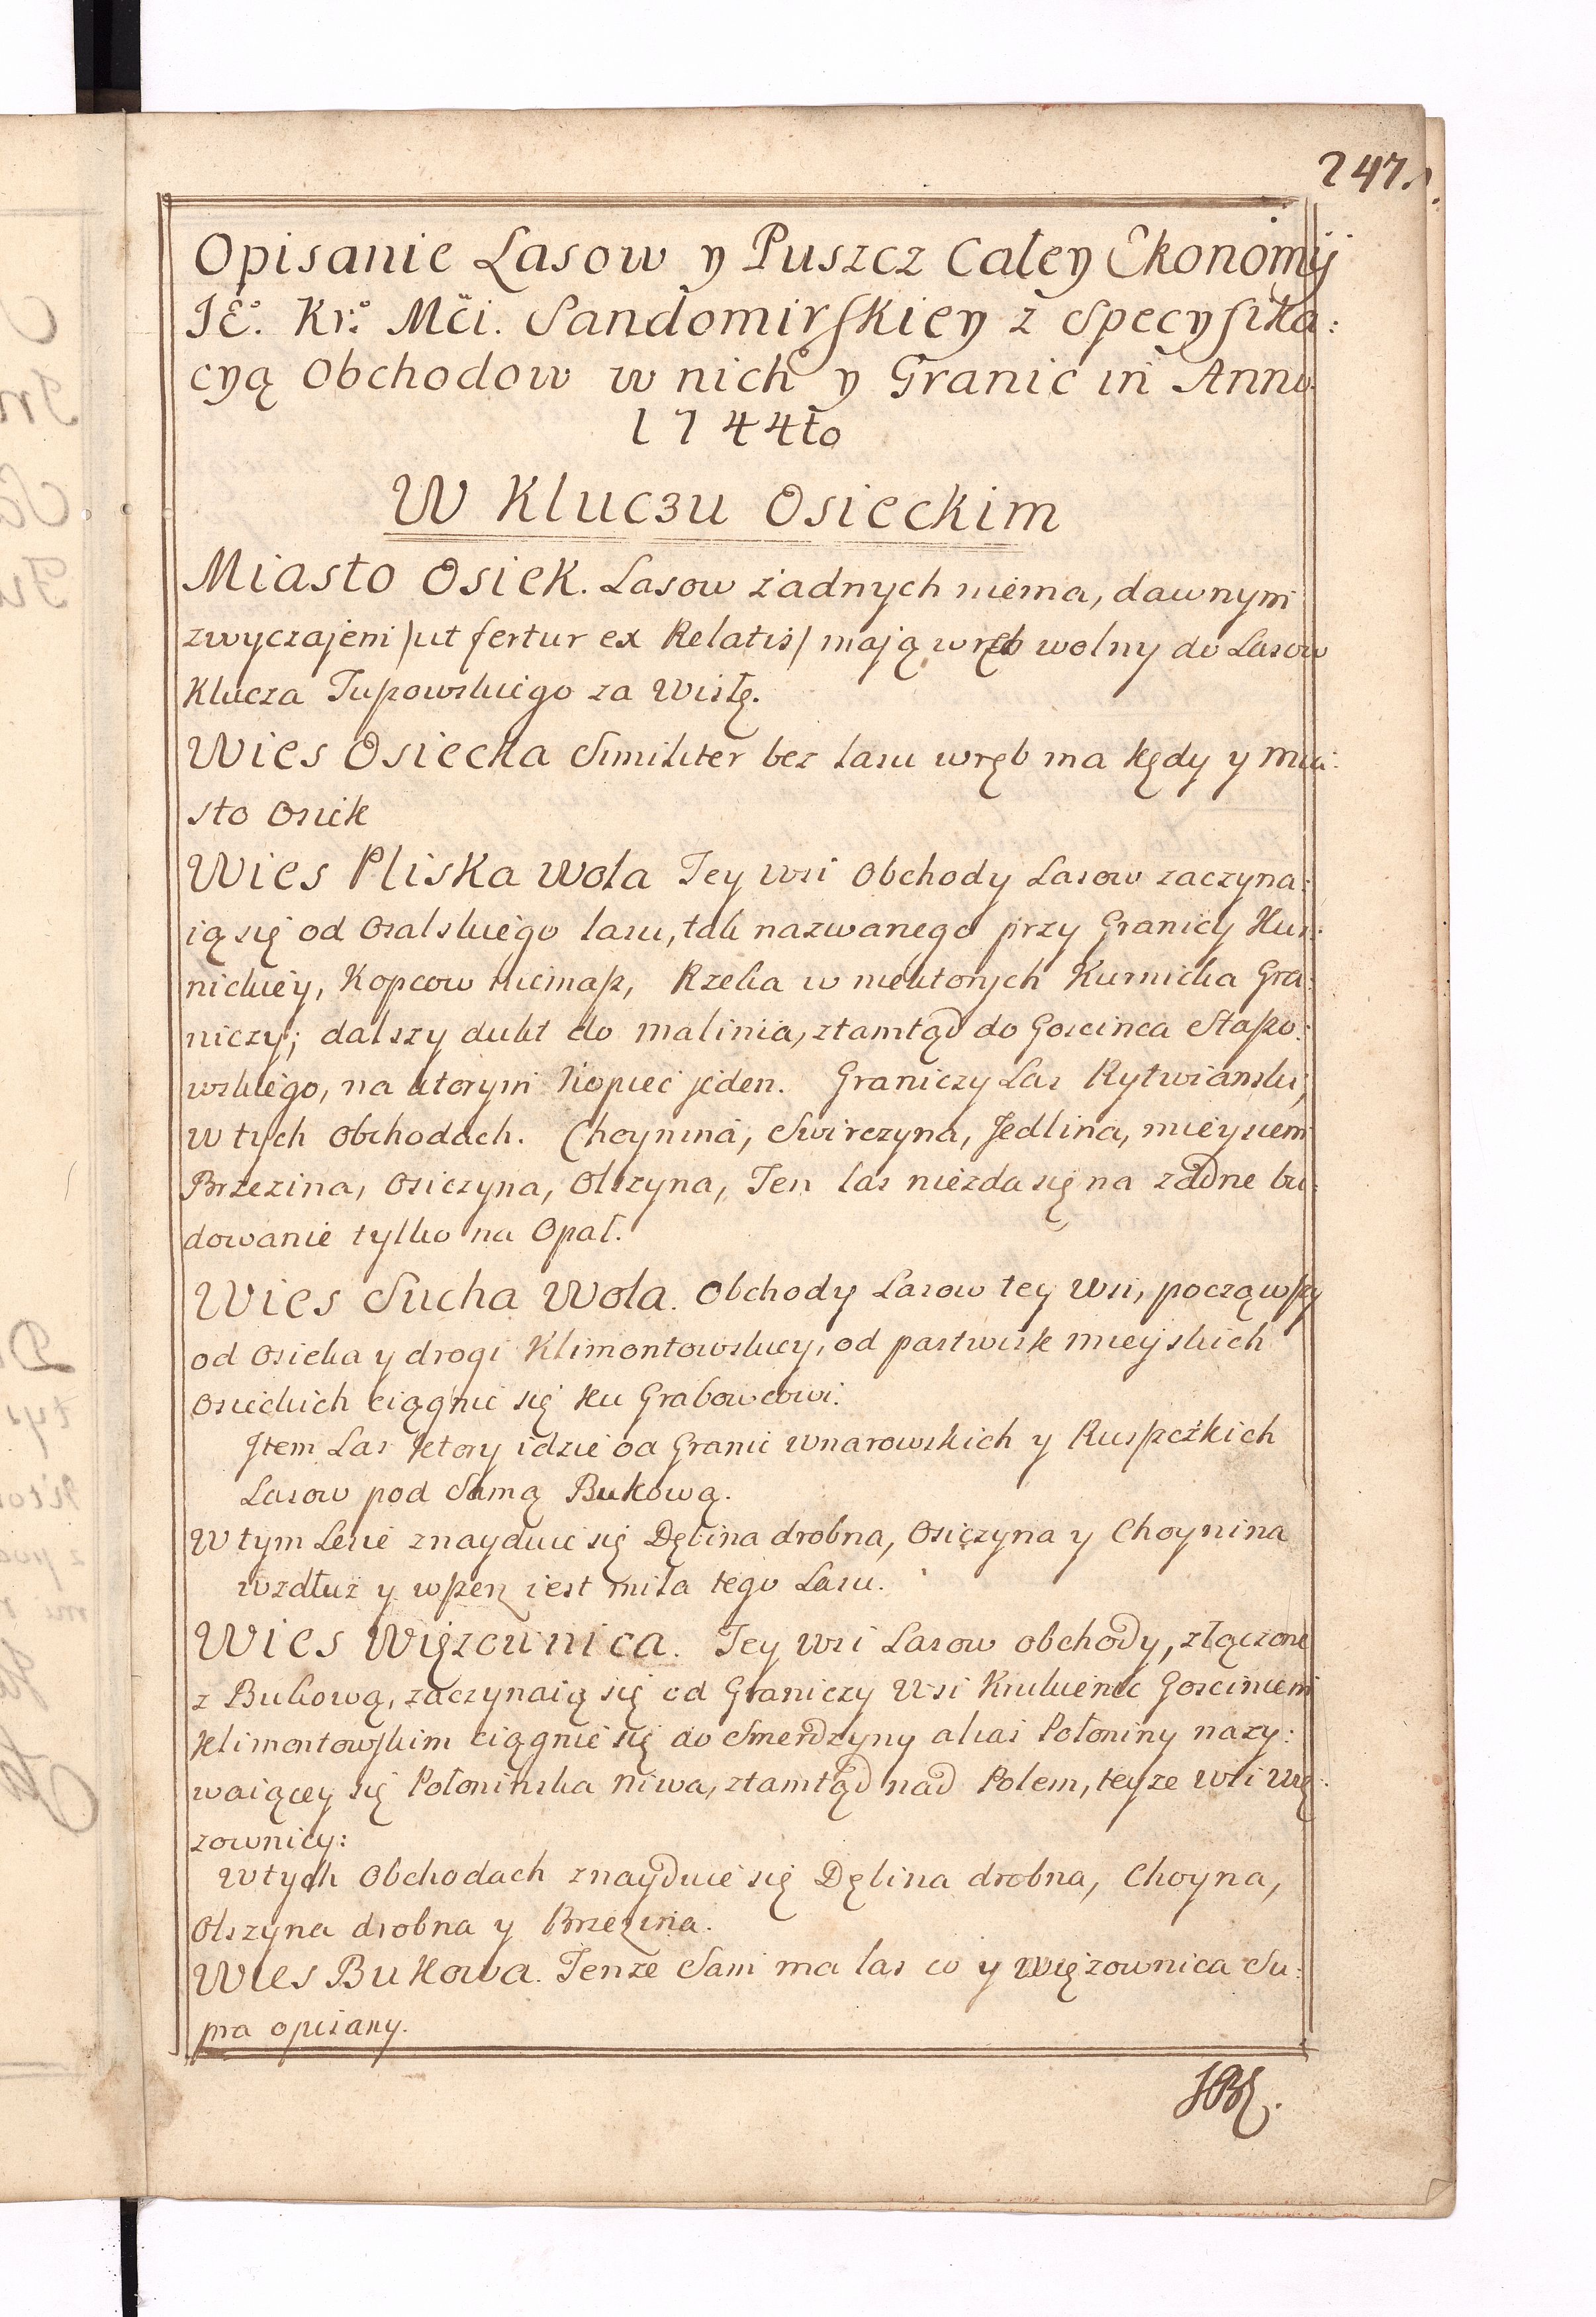 247.
Opisanie Lasow y Puszcz Całey Ekonomij
JE.° Kr:° Mći. Sandomirskiey z Specyfika:
cyą Obchodow w nich y Granic in Anno
1744to
W Kluczu Osieckim
Miasto Osiek. Lasow żadnych niema, dawnym
zwyczajem /ut fertur ex Relatis/ mają wręb wolny do Lasow
Klucza Tuszowskiego za Wisłę.
Wies Osiecka Similiter bez lasu wręb ma kędy y Mia:
sto Osiek
Wies Pliska Wola Tey wsi Obchody Lasow zaczyna:
ią się od Osalskiego lasu, tak nazwanego przy Granicy Kur:
nickiey, Kopcow niemasz, Rzeka w niektorych Kurnicka Gra:
niczy; dalszy dukt do Malinia, ztamtąd do Goscinca Staszo:
wskiego, na ktorym Kopiec jeden. Graniczy Las Rytwianski,
w tych Obchodach. Choynina, Swirczyna, Jedlina, mieyscem
Brzezina, Osiczyna, Olszyna, Ten las niezda się na żadne bu:
dowanie tylko na Opał.
Wies Sucha Wola. Obchody Lasow tey Wsi, począwszy
od Osieka y drogi Klimontowskiey, od pastwisk mieyskich
Osieckich ciągnie się ku Grabowcowi.
Jtem Las ktory idzie od Granic Wnorowskich y Ruszczkich
Lasow pod Samą Bukową.
W tym Lesie znayduie się Dębina drobna, Osiczyna y Choynina
wzdłuż y wszerz iest mila tego Lasu.
Wies Więzownica. Tey wsi Lasow obchody, złączone
z Bukową, zaczynaią się od Graniczy Wsi Goscincem
Klimontowskim ciągnie się do Smerdzyny alias Połoniny nazy:
waiącey się Połoninska Niwa, ztamtąd nad Polem, teyze Wsi Wię:
zownicy:
W tych Obchodach znayduie się Dębina drobna, Choyna,
Olszyna drobna y Brzezina.
Wies Bukowa. Tenze Sam ma las co y Więzownica Su:
pra opisany.